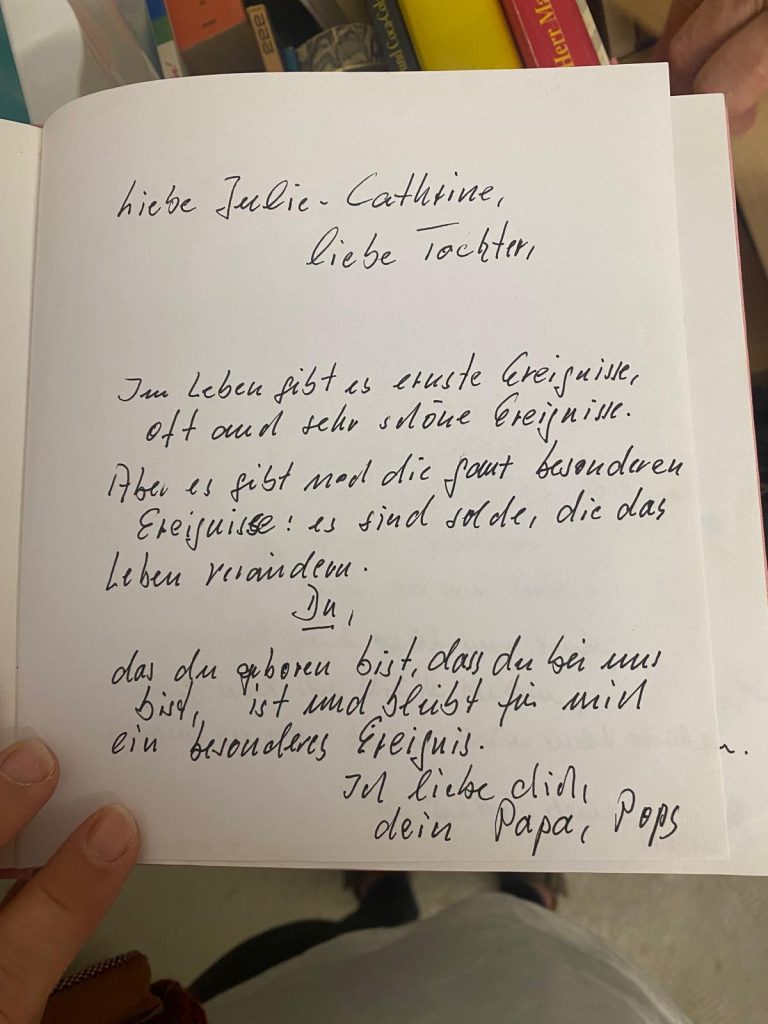 und Coca-Col
Herr Ma
Liebe Julie-Cathrine,
liebe Tochter,
Im Leben gibt es ernste Ereignisse,
oft auch sehr schöne Ereignisse.
Aber es gibt noch die ganz besonderen
Ereignisse: es sind solche, die das
Leben verändern.
Du,
das du geboren bist, dass du bei uns
bist, ist und bleibt für mich
ein besonderes Ereignis.
Ich liebe dich,
dein Papa, Pops